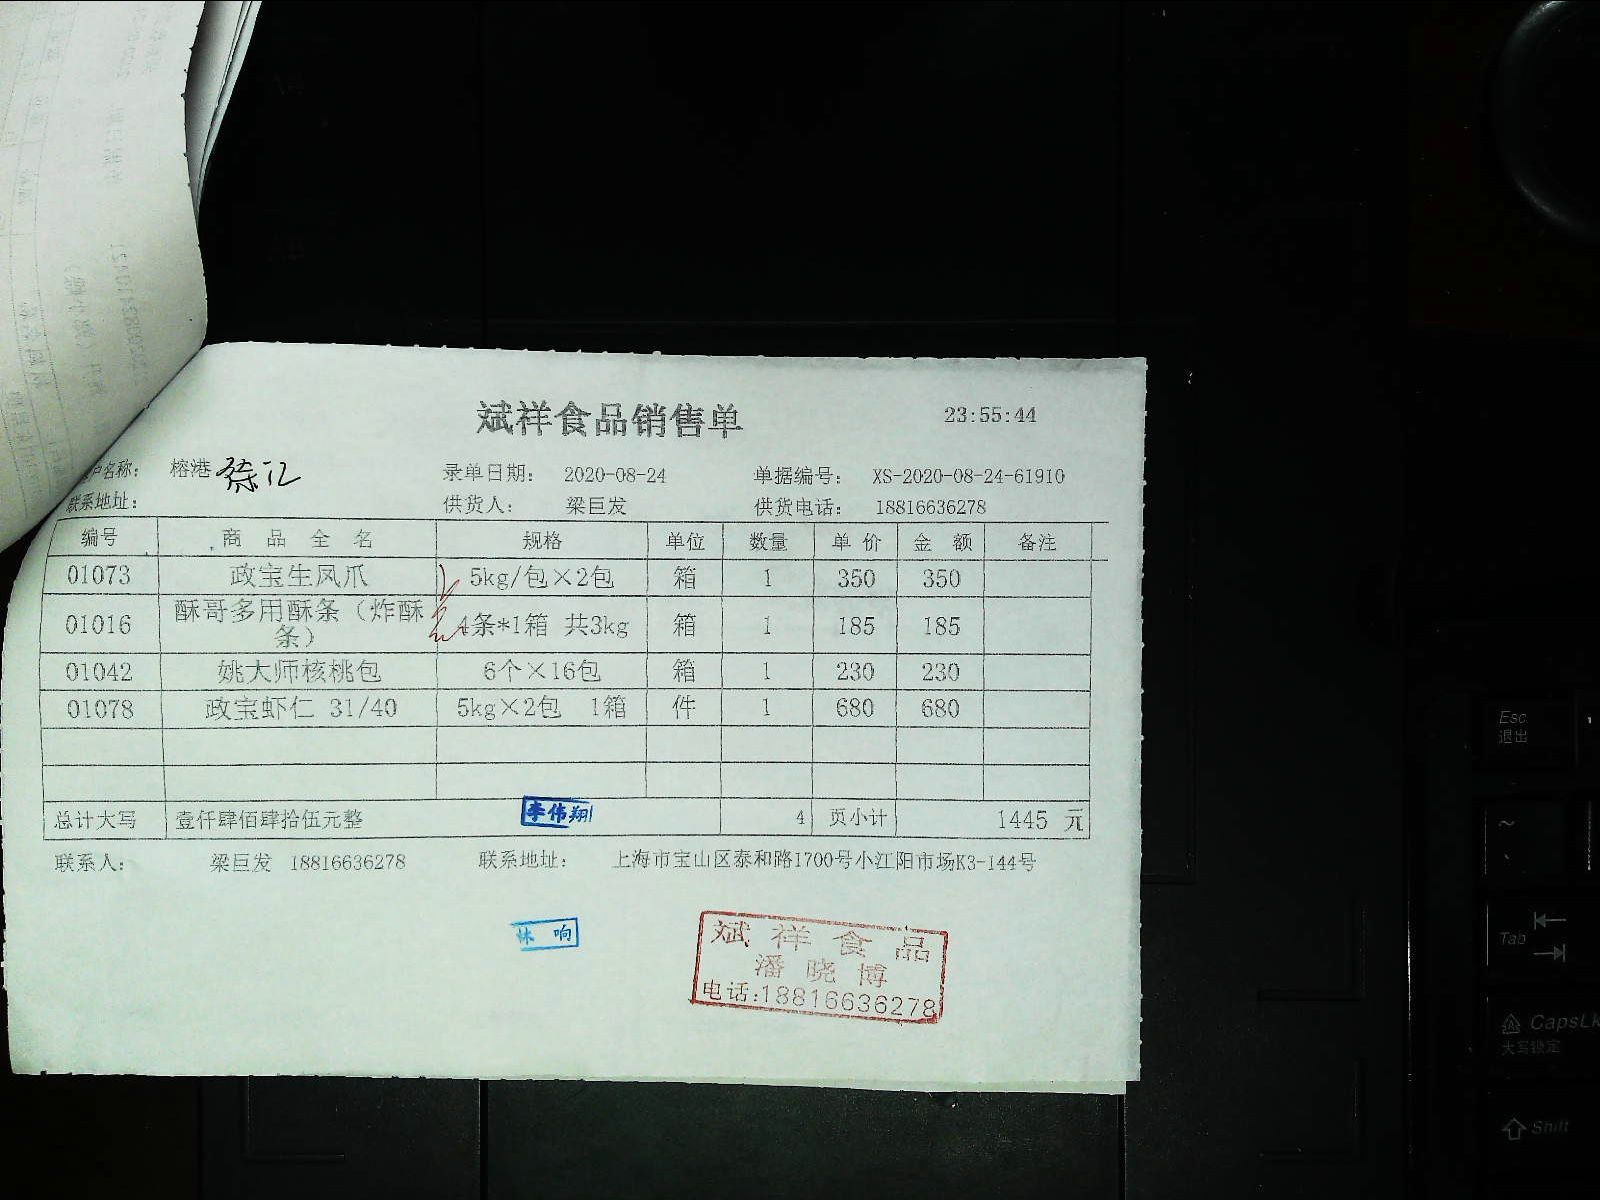 斌祥食品销售单 23:55:44
户名称： 榕港 徐汇 录单日期： 2020-08-24 单据编号： XS-2020-08-24-61910
联系地址： 供货人： 梁巨发 供货电话： 18816636278
编号 商品全名 规格 单位 数量 单价 金额 备注
01073 政宝生凤爪 5kg/包×2包 箱 1 350 350
01016 酥哥多用酥条（炸酥条） 4条*1箱 共3kg 箱 1 185 185
01042 姚大师核桃包 6个×16包 箱 1 230 230
01078 政宝虾仁 31/40 5kg×2包 1箱 件 1 680 680
总计大写 壹仟肆佰肆拾伍元整 李伟翔 4 页小计 1445 元
联系人： 梁巨发 18816636278 联系地址： 上海市宝山区泰和路1700号小江阳市场K3-144号
林响
斌祥食品
潘晓博
电话:18816636278
Esc
退出
Tab
CapsLk
大写锁定
Shift